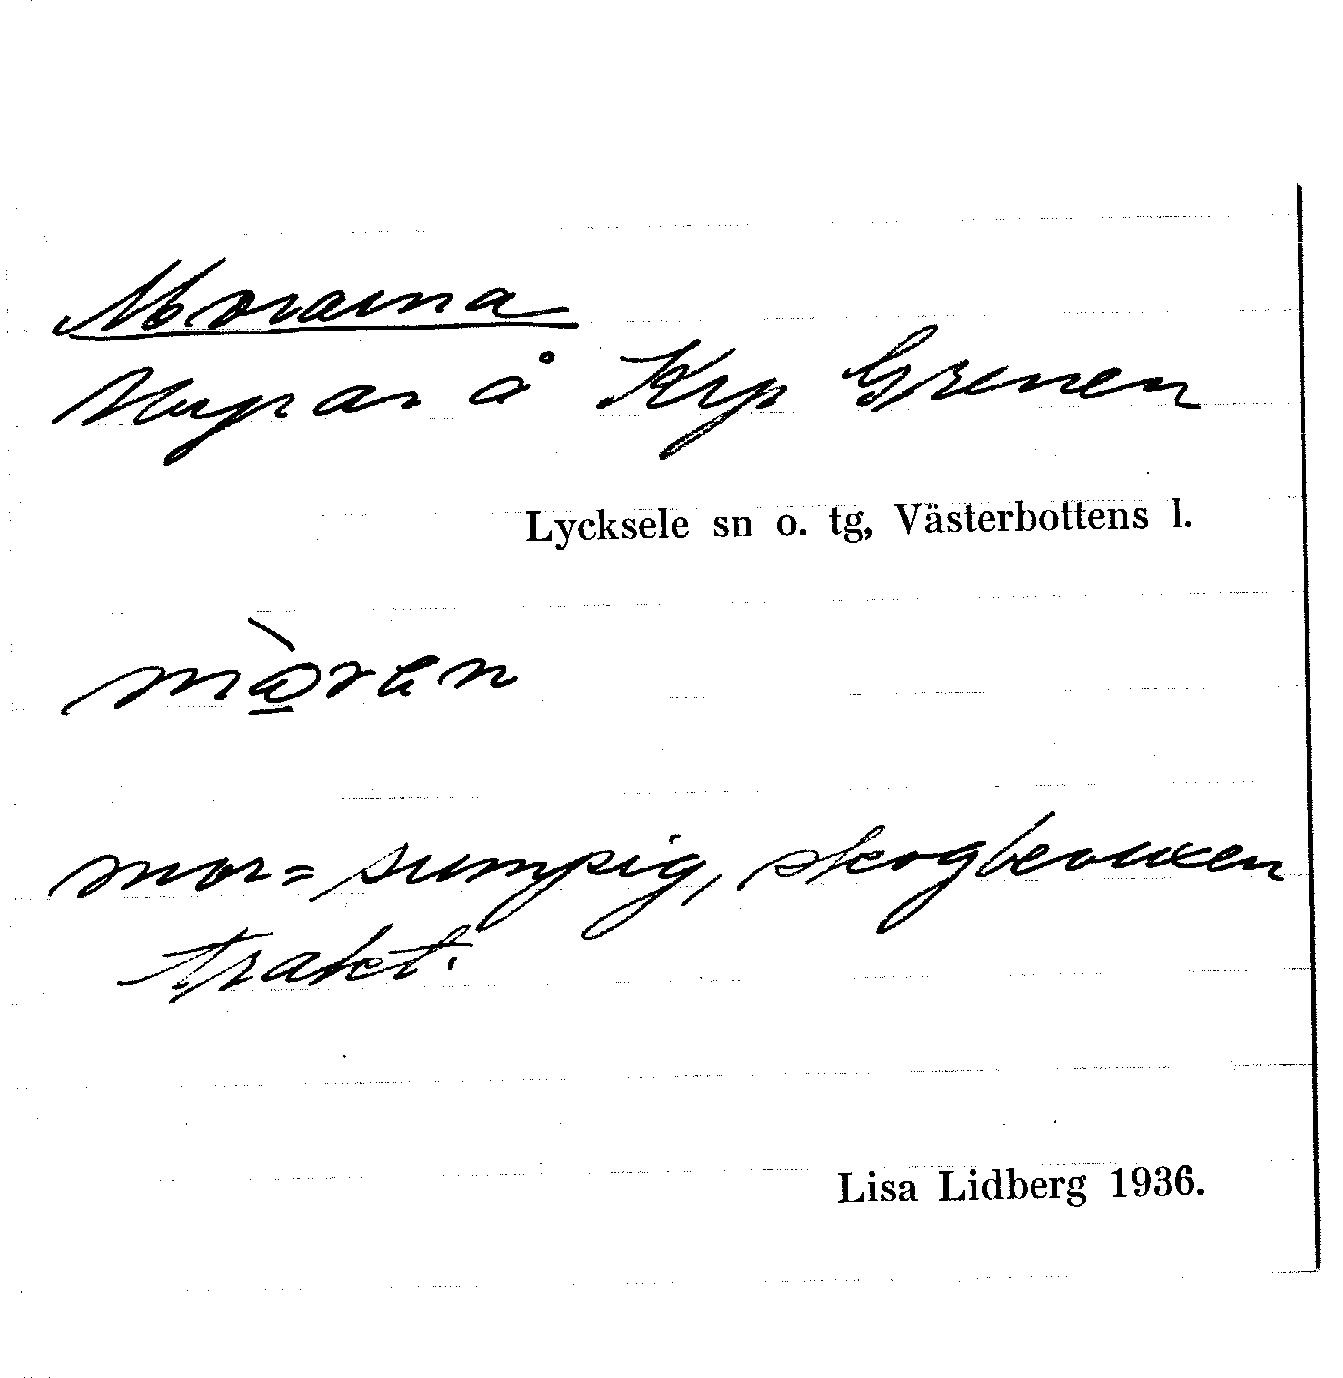 Morarna
Myrar å Krp Grenen
Lycksele sn o. tg, Västerbottens l.
mò̲ran
mor= sumpig, skogbevuxen
trakt.
Lisa Lidberg 1936.